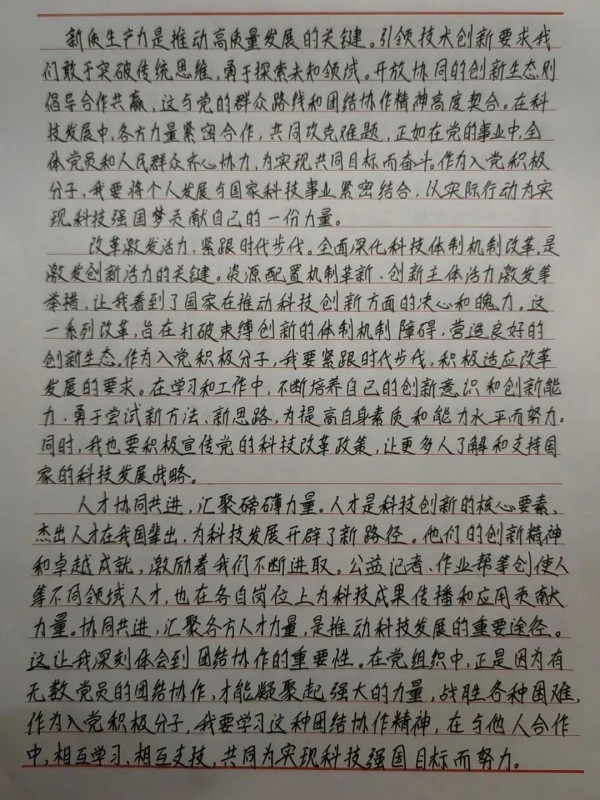 新质生产力是推动高质量发展的关键。引领技术创新要求我
们敢于突破传统思维，勇于探索未知领域。开放协同的创新生态则
倡导合作共赢，这与党的群众路线和团结协作精神高度契合。在科
技发展中，各方力量紧密合作，共同攻克难题，正如在党的事业中，全
体党员和人民群众齐心协力，为实现共同目标而奋斗。作为入党积极
分子，我要将个人发展与国家科技事业紧密结合，以实际行动为实
现科技强国梦贡献自己的一份力量。
改革激发活力，紧跟时代步伐。全面深化科技体制机制改革，是
激发创新活力的关键。资源配置机制革新、创新主体活力激发等
举措，让我看到了国家在推动科技创新方面的决心和魄力。这
一系列改革，旨在打破束缚创新的体制机制障碍，营造良好的
创新生态。作为入党积极分子，我要紧跟时代步伐，积极适应改革
发展的要求。在学习和工作中，不断培养自己的创新意识和创新能
力，勇于尝试新方法、新思路，为提高自身素质和能力水平而努力。
同时，我也要积极宣传党的科技改革政策，让更多人了解和支持国
家的科技发展战略。
人才协同共进，汇聚磅礴力量。人才是科技创新的核心要素，
杰出人才在我国辈出，为科技发展开辟了新路径。他们的创新精神
和卓越成就，激励着我们不断进取。公益记者、作业帮等创使人
等不同领域人才，也在各自岗位上为科技成果传播和应用贡献
力量。协同共进，汇聚各方人才力量，是推动科技发展的重要途径。
这让我深刻体会到团结协作的重要性。在党组织中，正是因为有
无数党员的团结协作，才能凝聚起强大的力量，战胜各种困难，
作为入党积极分子，我要学习这种团结协作精神，在与他人合作
中，相互学习、相互支技，共同为实现科技强国目标而努力。